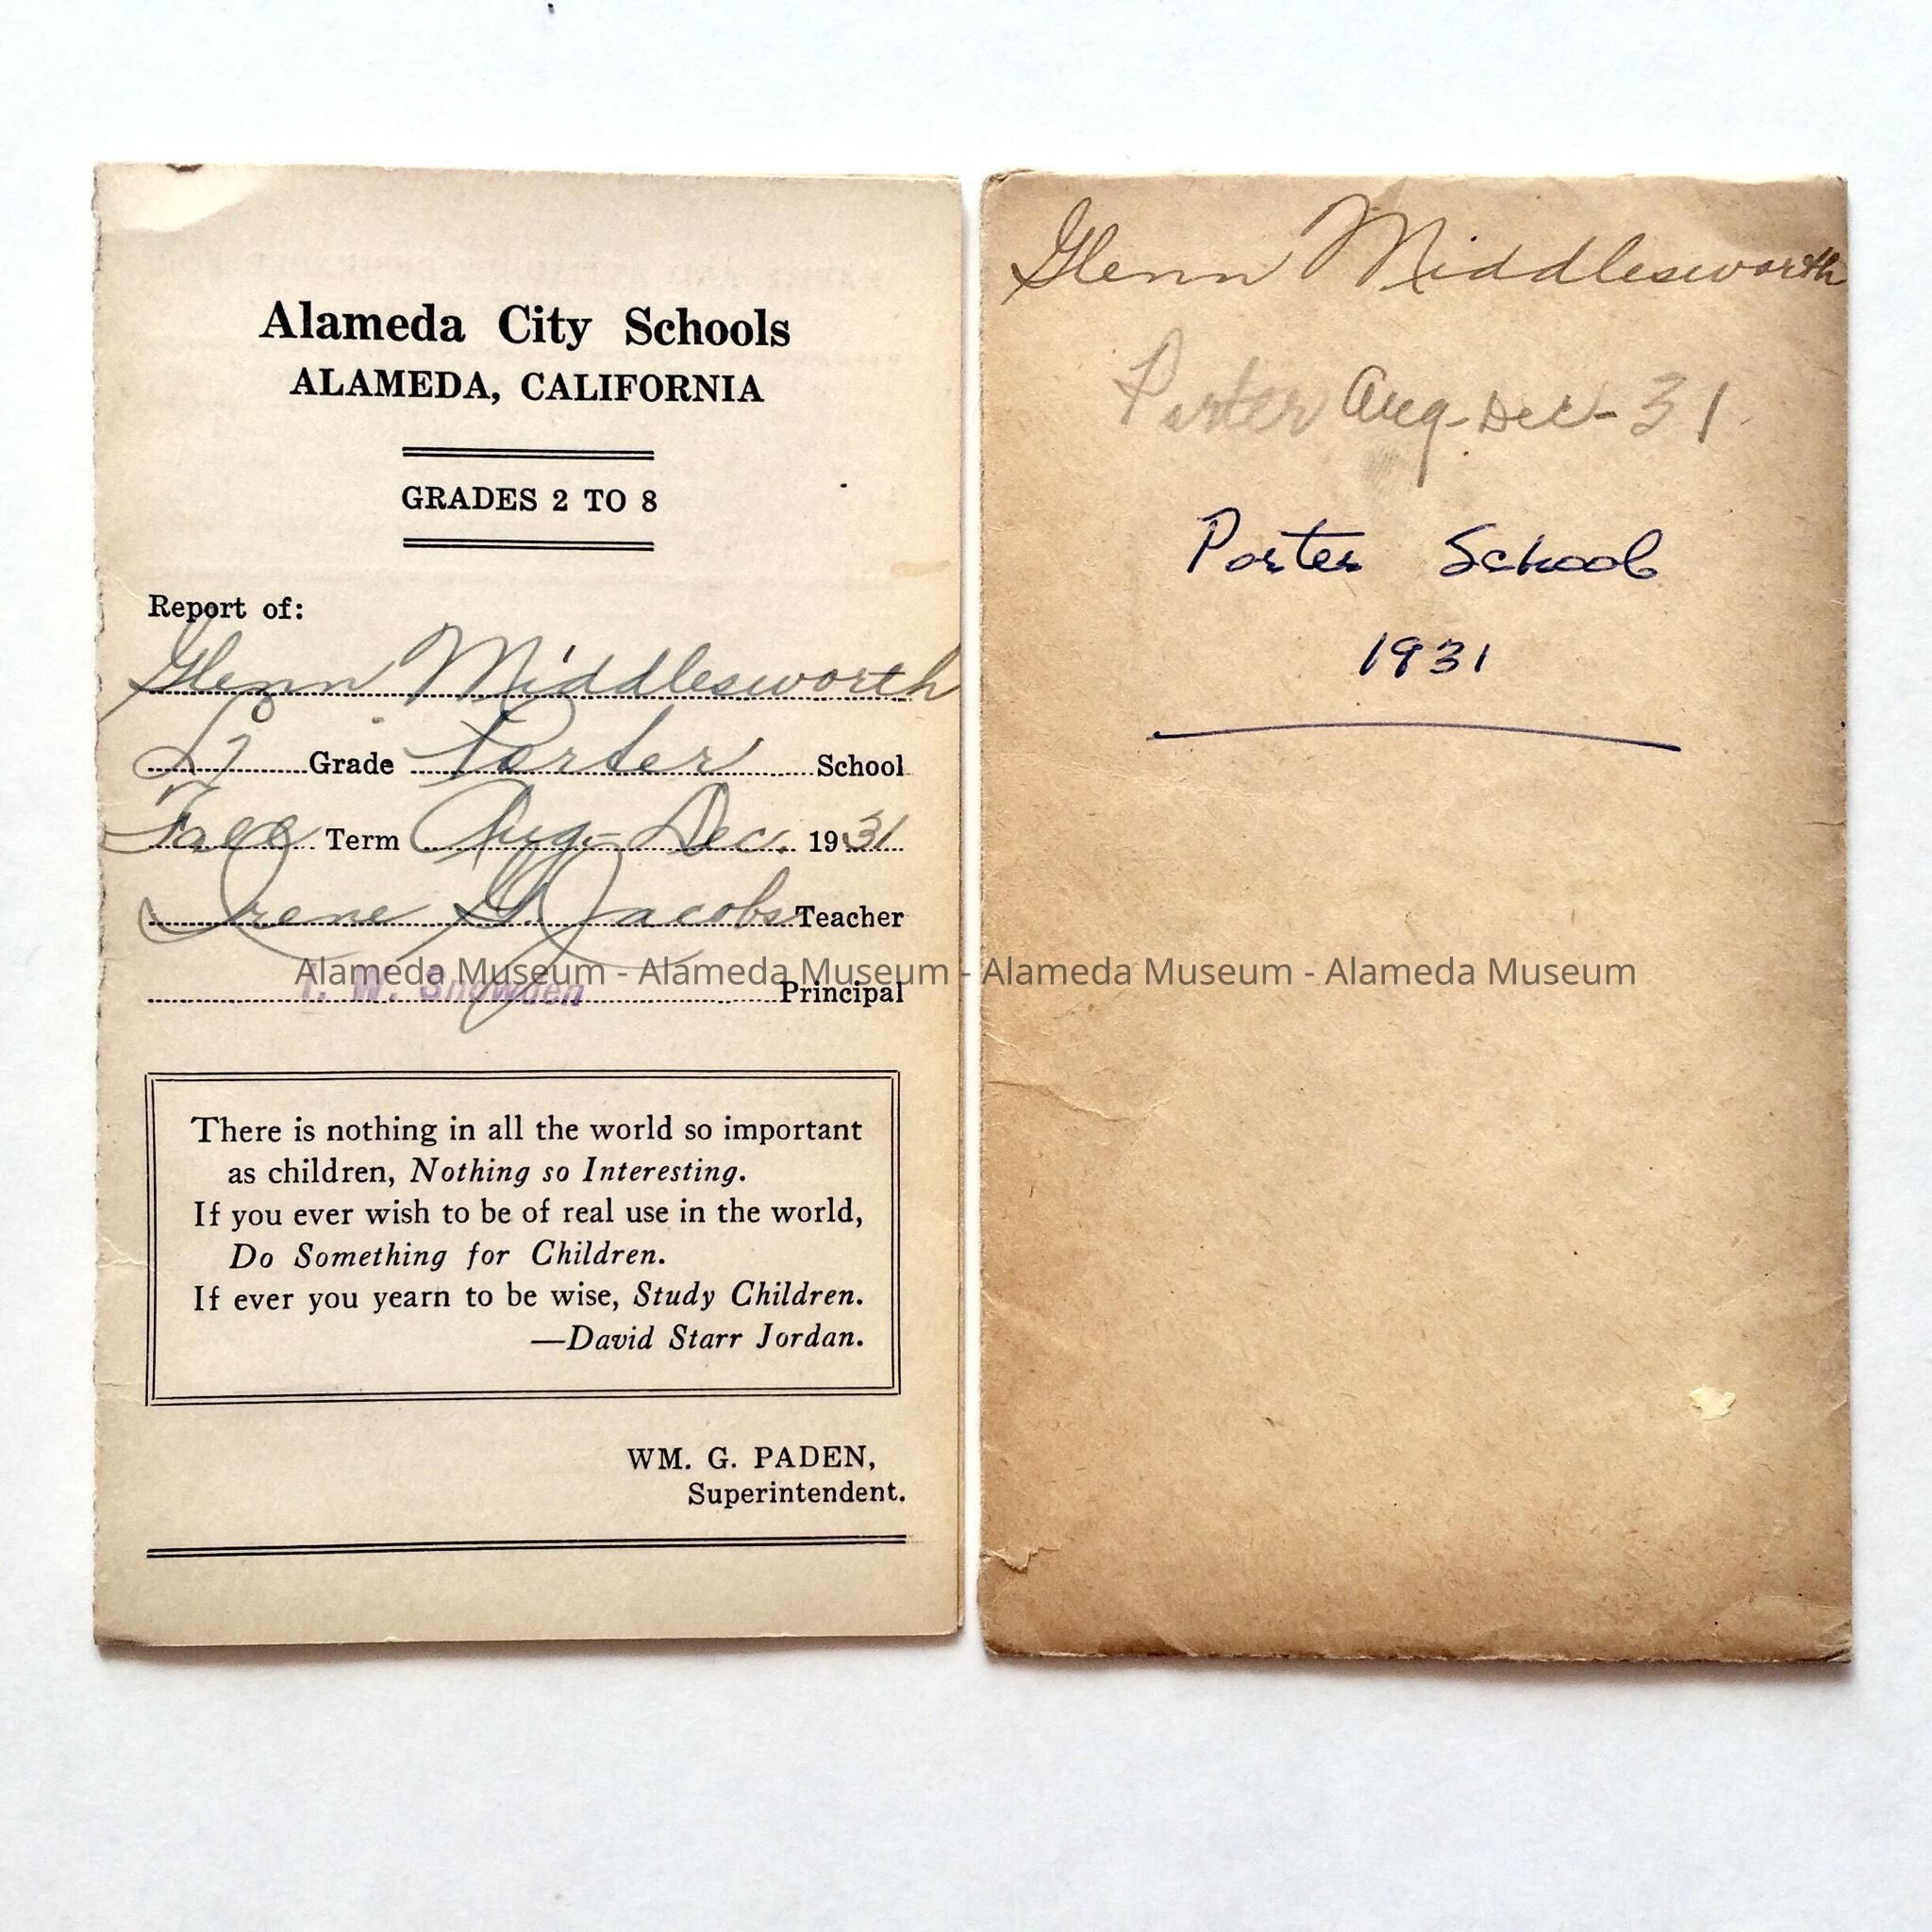 Alameda City Schools
ALAMEDA, CALIFORNIA
GRADES 2 TO 8
Report of:
Glenn Middlesworth
Grade Porter School
Fall Term Aug.-Dec. 1931
Irene G. Jacobs Teacher
W. Snowden Principal
There is nothing in all the world so important
as children, Nothing so Interesting.
If you ever wish to be of real use in the world,
Do Something for Children.
If ever you yearn to be wise, Study Children.
—David Starr Jordan.
WM. G. PADEN,
Superintendent.
Glenn Middlesworth
Porter Aug-Dec-31
Porter School
1931
Alameda Museum - Alameda Museum - Alameda Museum - Alameda Museum